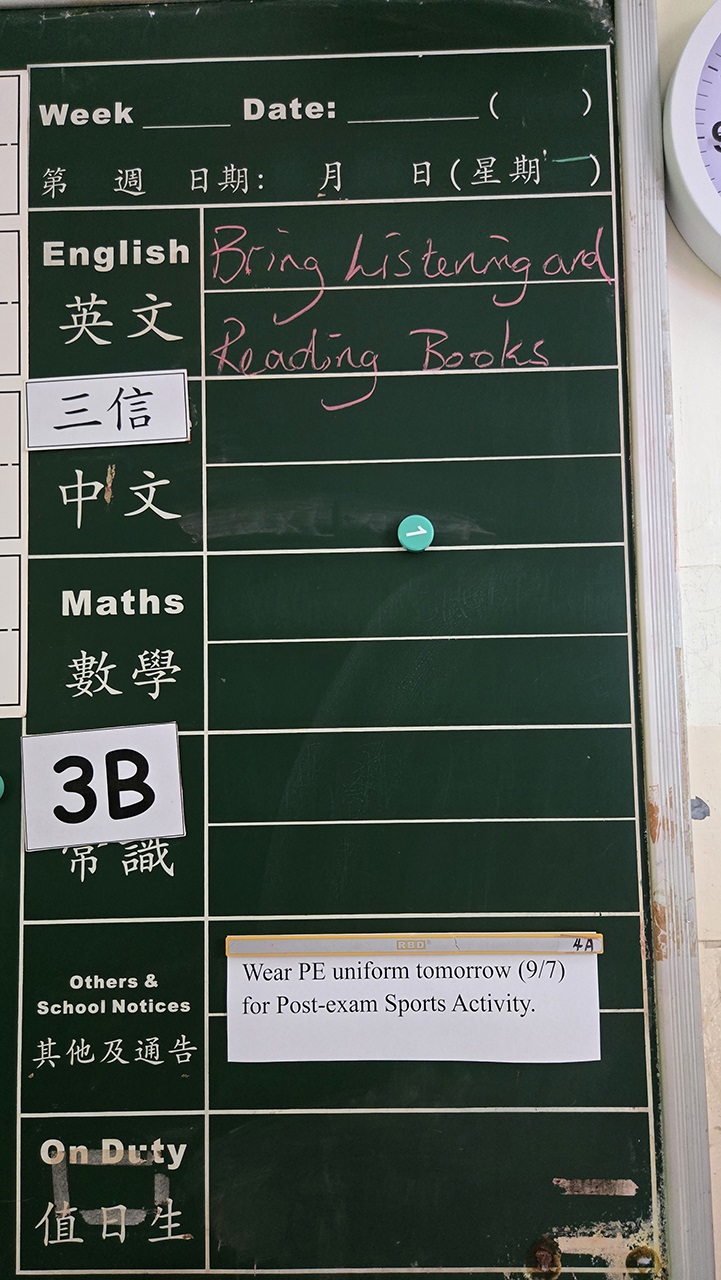 Week _____ Date: ________ ( )
第 週 日期: 月 日(星期一)
English
英文
Bring Listening and
Reading Books
三信
中文
1
Maths
數學
3B
常識
Others &
School Notices
其他及通告
RBD 4A
Wear PE uniform tomorrow (9/7)
for Post-exam Sports Activity.
On Duty
值日生
9